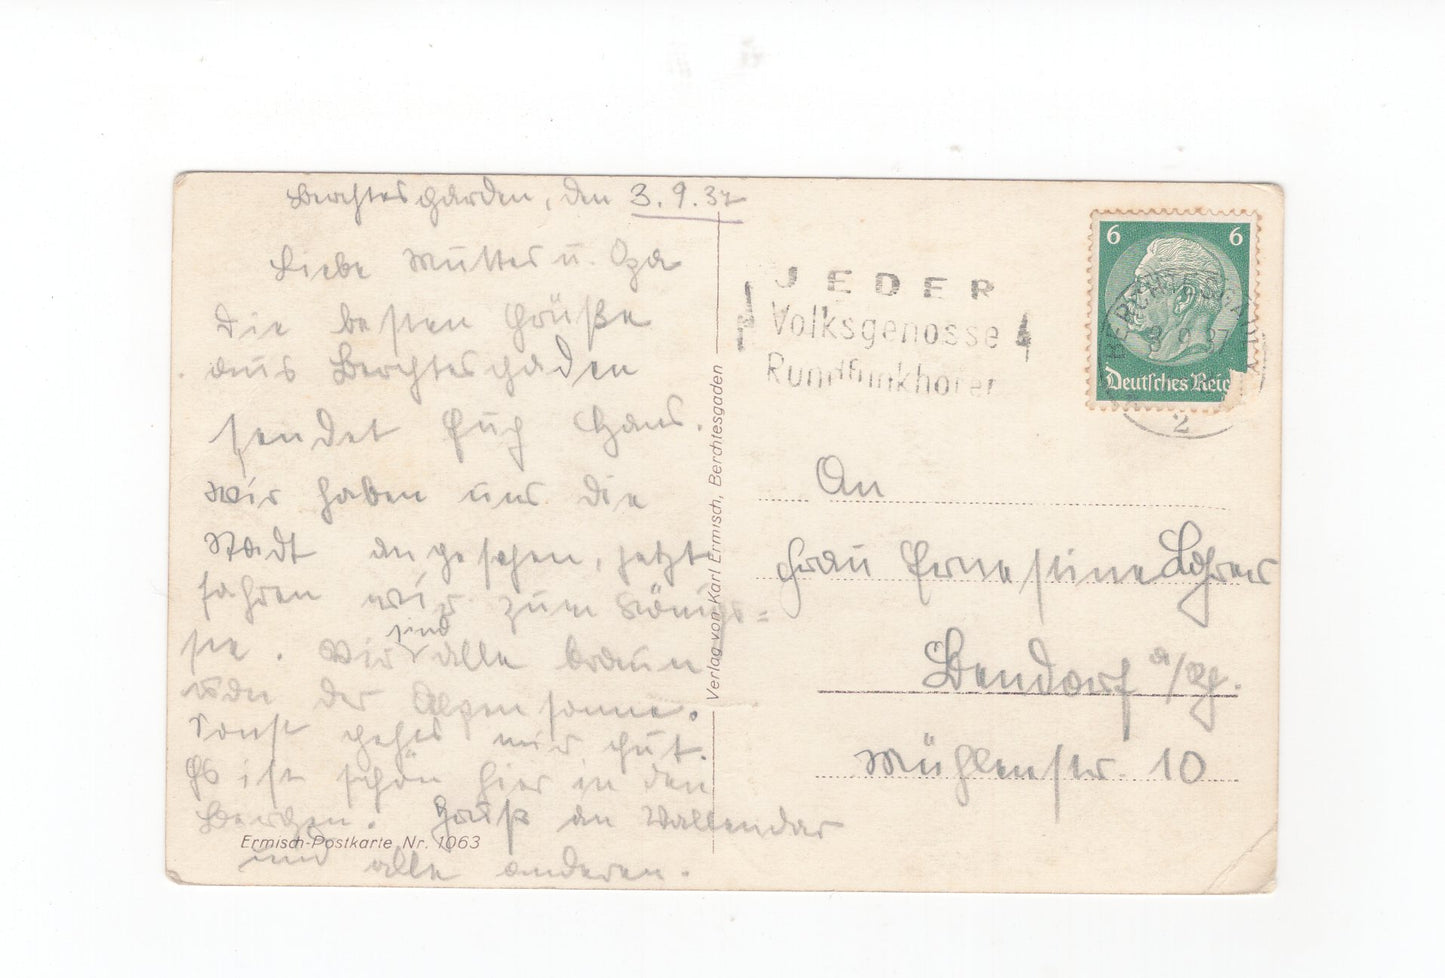 Berchtesgarden, den 3.9.37
Liebe Mutter u. Opa
Die besten Grüße
aus Berchtesgaden
sendet Euch Hans.
Wir haben uns die
Stadt angesehen, jetzt
fahren wir zum Königs=
see. Wir sind alle braun
von der Alpensonne.
Sonst gehts mir gut.
Es ist schön hier in den
Bergen. Gruß an Vallendar
und alle anderen.
Ermisch-Postkarte Nr. 1063
Verlag von Karl Ermisch, Berchtesgaden
JEDER
Volksgenosse
Rundfunkhörer
6 6
Deutsches Reic
BERCHTESGADEN
2
An
Frau Ernestine Lohrer
Bendorf a/Rh.
Mühlenstr. 10